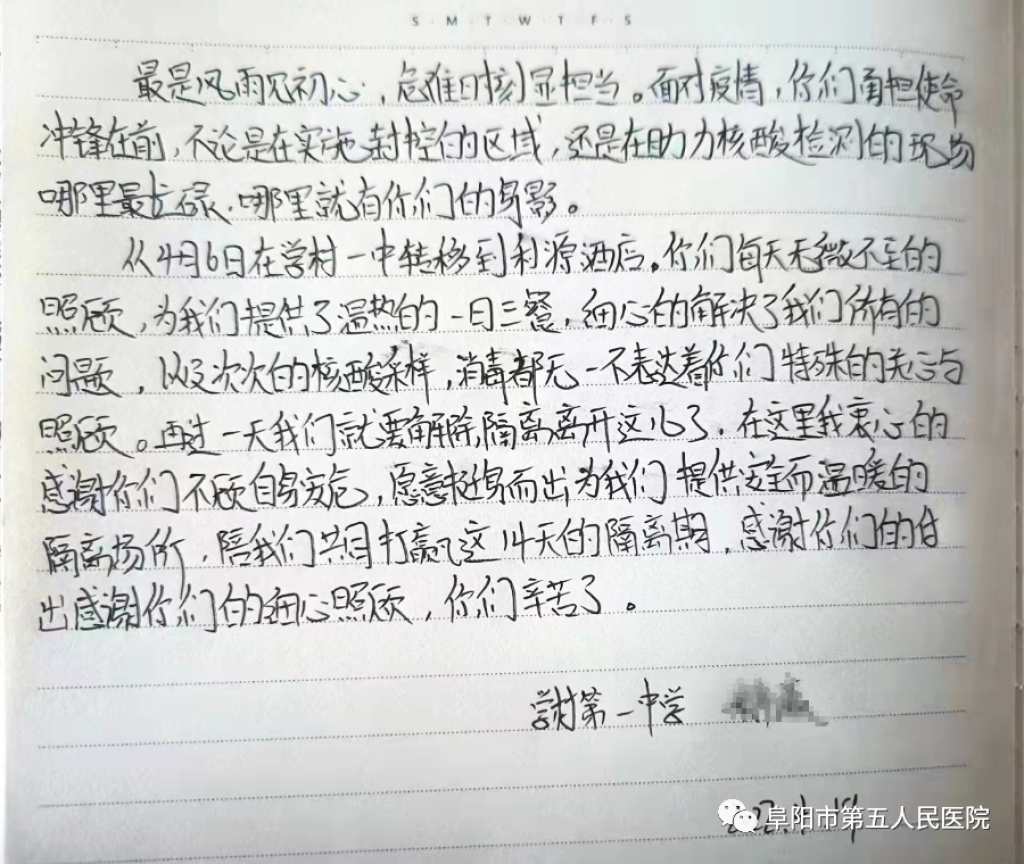 S M T W T F S
最是风雨见初心，危难时刻显担当。面对疫情，你们勇担使命
冲锋在前，不论是在实施封控的区域，还是在助力核酸检测的现场
哪里最忙碌，哪里就有你们的身影。
从4月6日在学村一中转移到利源酒店。你们每天无微不至的
照顾，为我们提供了温热的一日三餐，细心的解决了我们所有的
问题，以及次次的核酸采样，消毒都无一不表达着你们特殊的关心与
照顾。再过一天我们就要解除隔离离开这儿了，在这里我衷心的
感谢你们不顾自身安危，愿意挺身而出为我们提供安全而温暖的
隔离场所，陪我们共同打赢这14天的隔离期，感谢你们的付
出感谢你们的细心照顾，你们辛苦了。
学村第一中学
2022.4.19
阜阳市第五人民医院